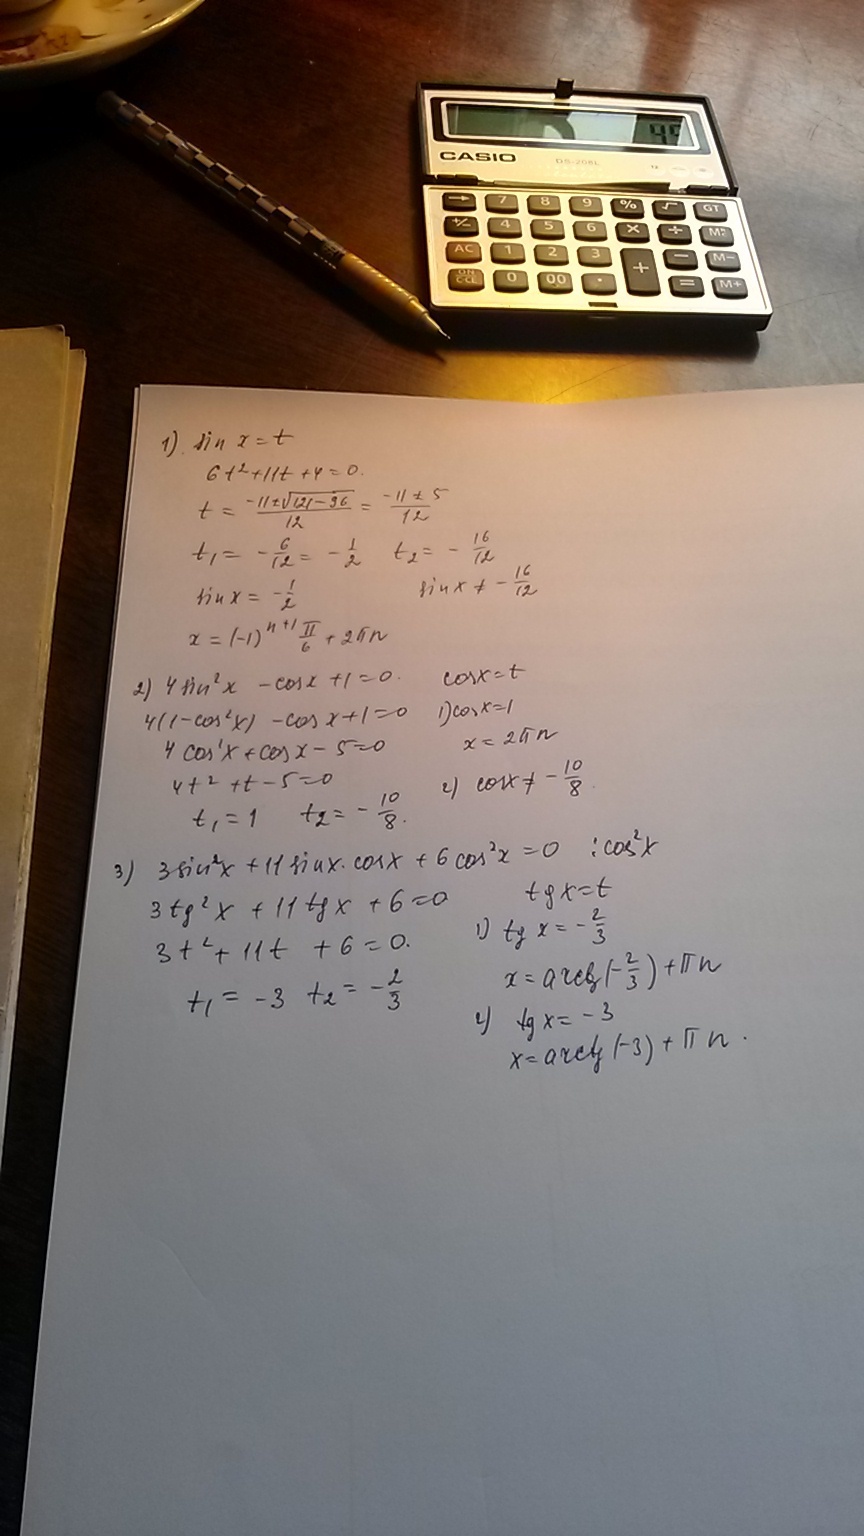 49
CASIO
DS-208L
→ 7 8 9 % √ GT
+/- 4 5 6 × ÷ M
AC 1 2 3 + − M−
ON CCE 0 00 · = M+
1) sin x = t
6t² + 11t + 4 = 0.
t = (-11 ± √(121 - 96))/12 = (-11 ± 5)/12
t₁ = -6/12 = -1/2 t₂ = -16/12
sin x = -1/2 sin x ≠ -16/12
x = (-1)ⁿ⁺¹ π/6 + 2πn
2) 4 sin²x - cos x + 1 = 0. cos x = t
4(1 - cos²x) - cos x + 1 = 0 1) cos x = 1
4 cos²x + cos x - 5 = 0 x = 2πn
4t² + t - 5 = 0 2) cos x ≠ -10/8.
t₁ = 1 t₂ = -10/8.
3) 3 sin²x + 11 sin x · cos x + 6 cos²x = 0 : cos²x
3 tg²x + 11 tg x + 6 = 0 tg x = t
3t² + 11t + 6 = 0. 1) tg x = -2/3
x = arctg(-2/3) + πn
t₁ = -3 t₂ = -2/3
2) tg x = -3
x = arctg(-3) + πn.